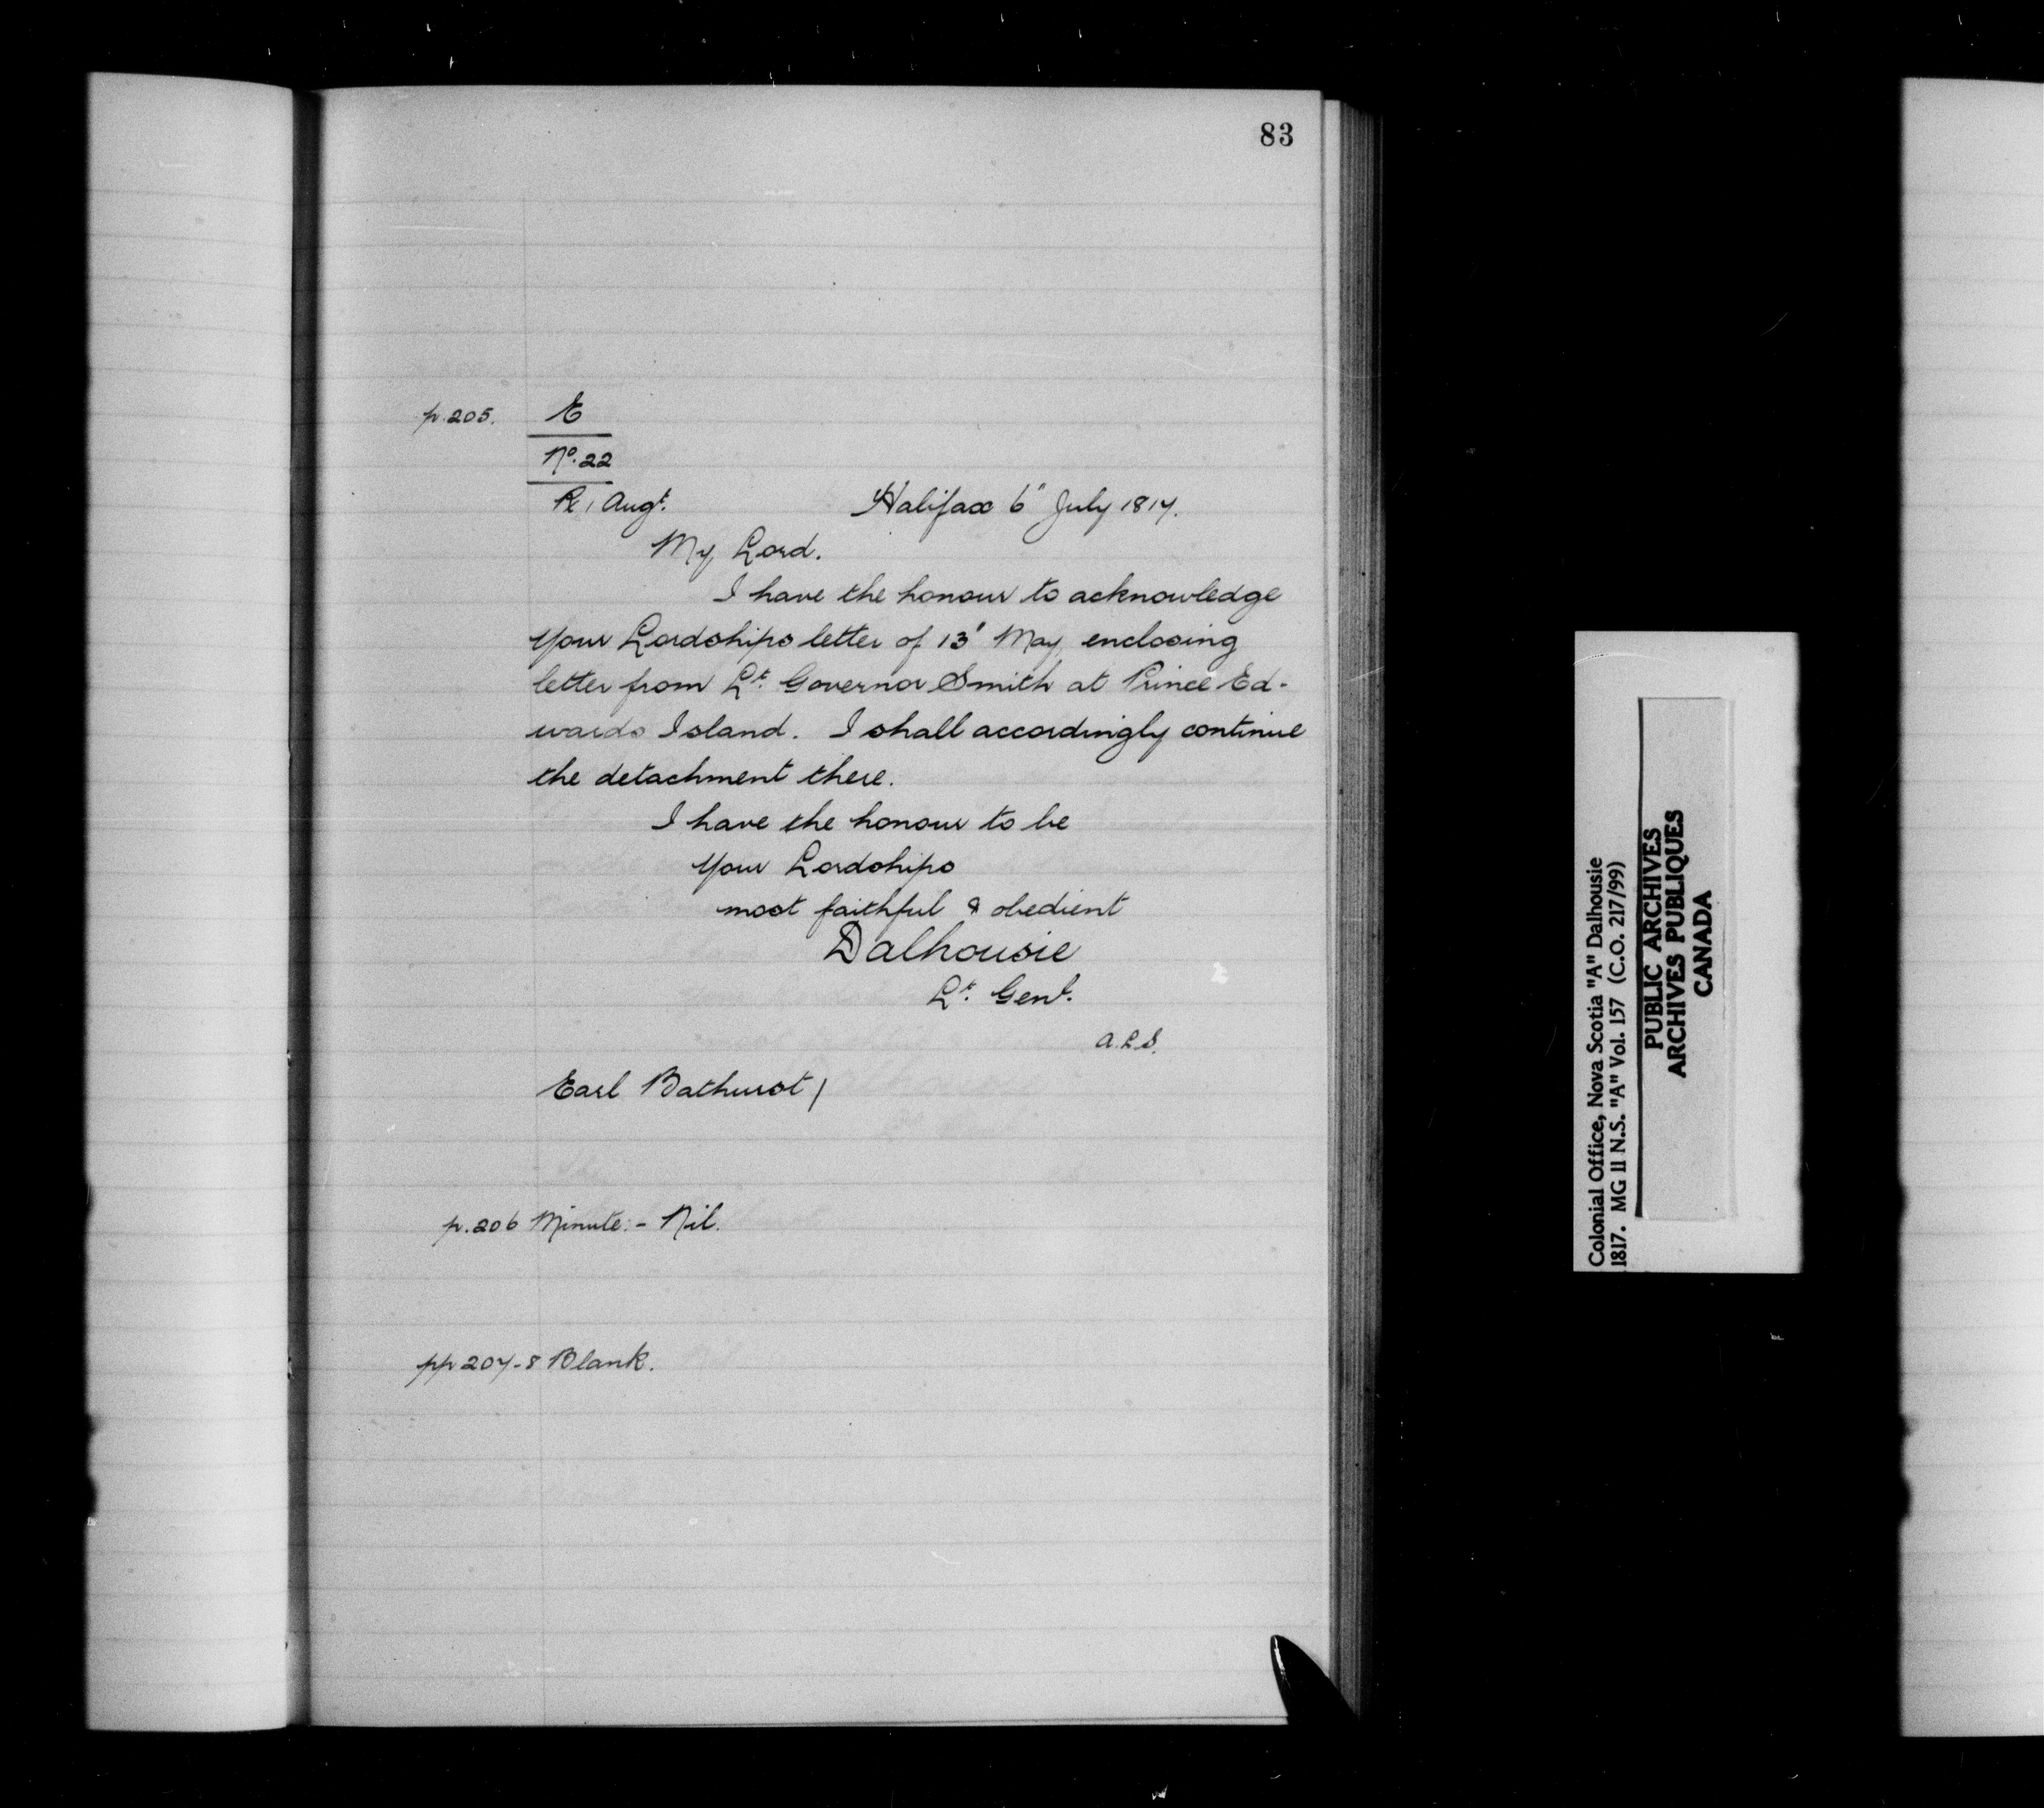 83
p. 205. E
No. 22
R 1 Augt. Halifax 6" July 1817.
My Lord.
I have the honour to acknowledge
your Lordships letter of 13' May, enclosing
letter from Lt. Governor Smith at Prince Ed-
wards Island. I shall accordingly continue
the detachment there.
I have the honour to be
your Lordships
most faithful & obedient
Dalhousie
Lt. Genl.
A.L.S.
Earl Bathurst /
p. 206 Minute:- Nil.
pp 207-8 Blank.
Colonial Office, Nova Scotia "A" Dalhousie
1817. MG 11 N.S. "A" Vol. 157 (C.O. 217/99)
PUBLIC ARCHIVES
ARCHIVES PUBLIQUES
CANADA